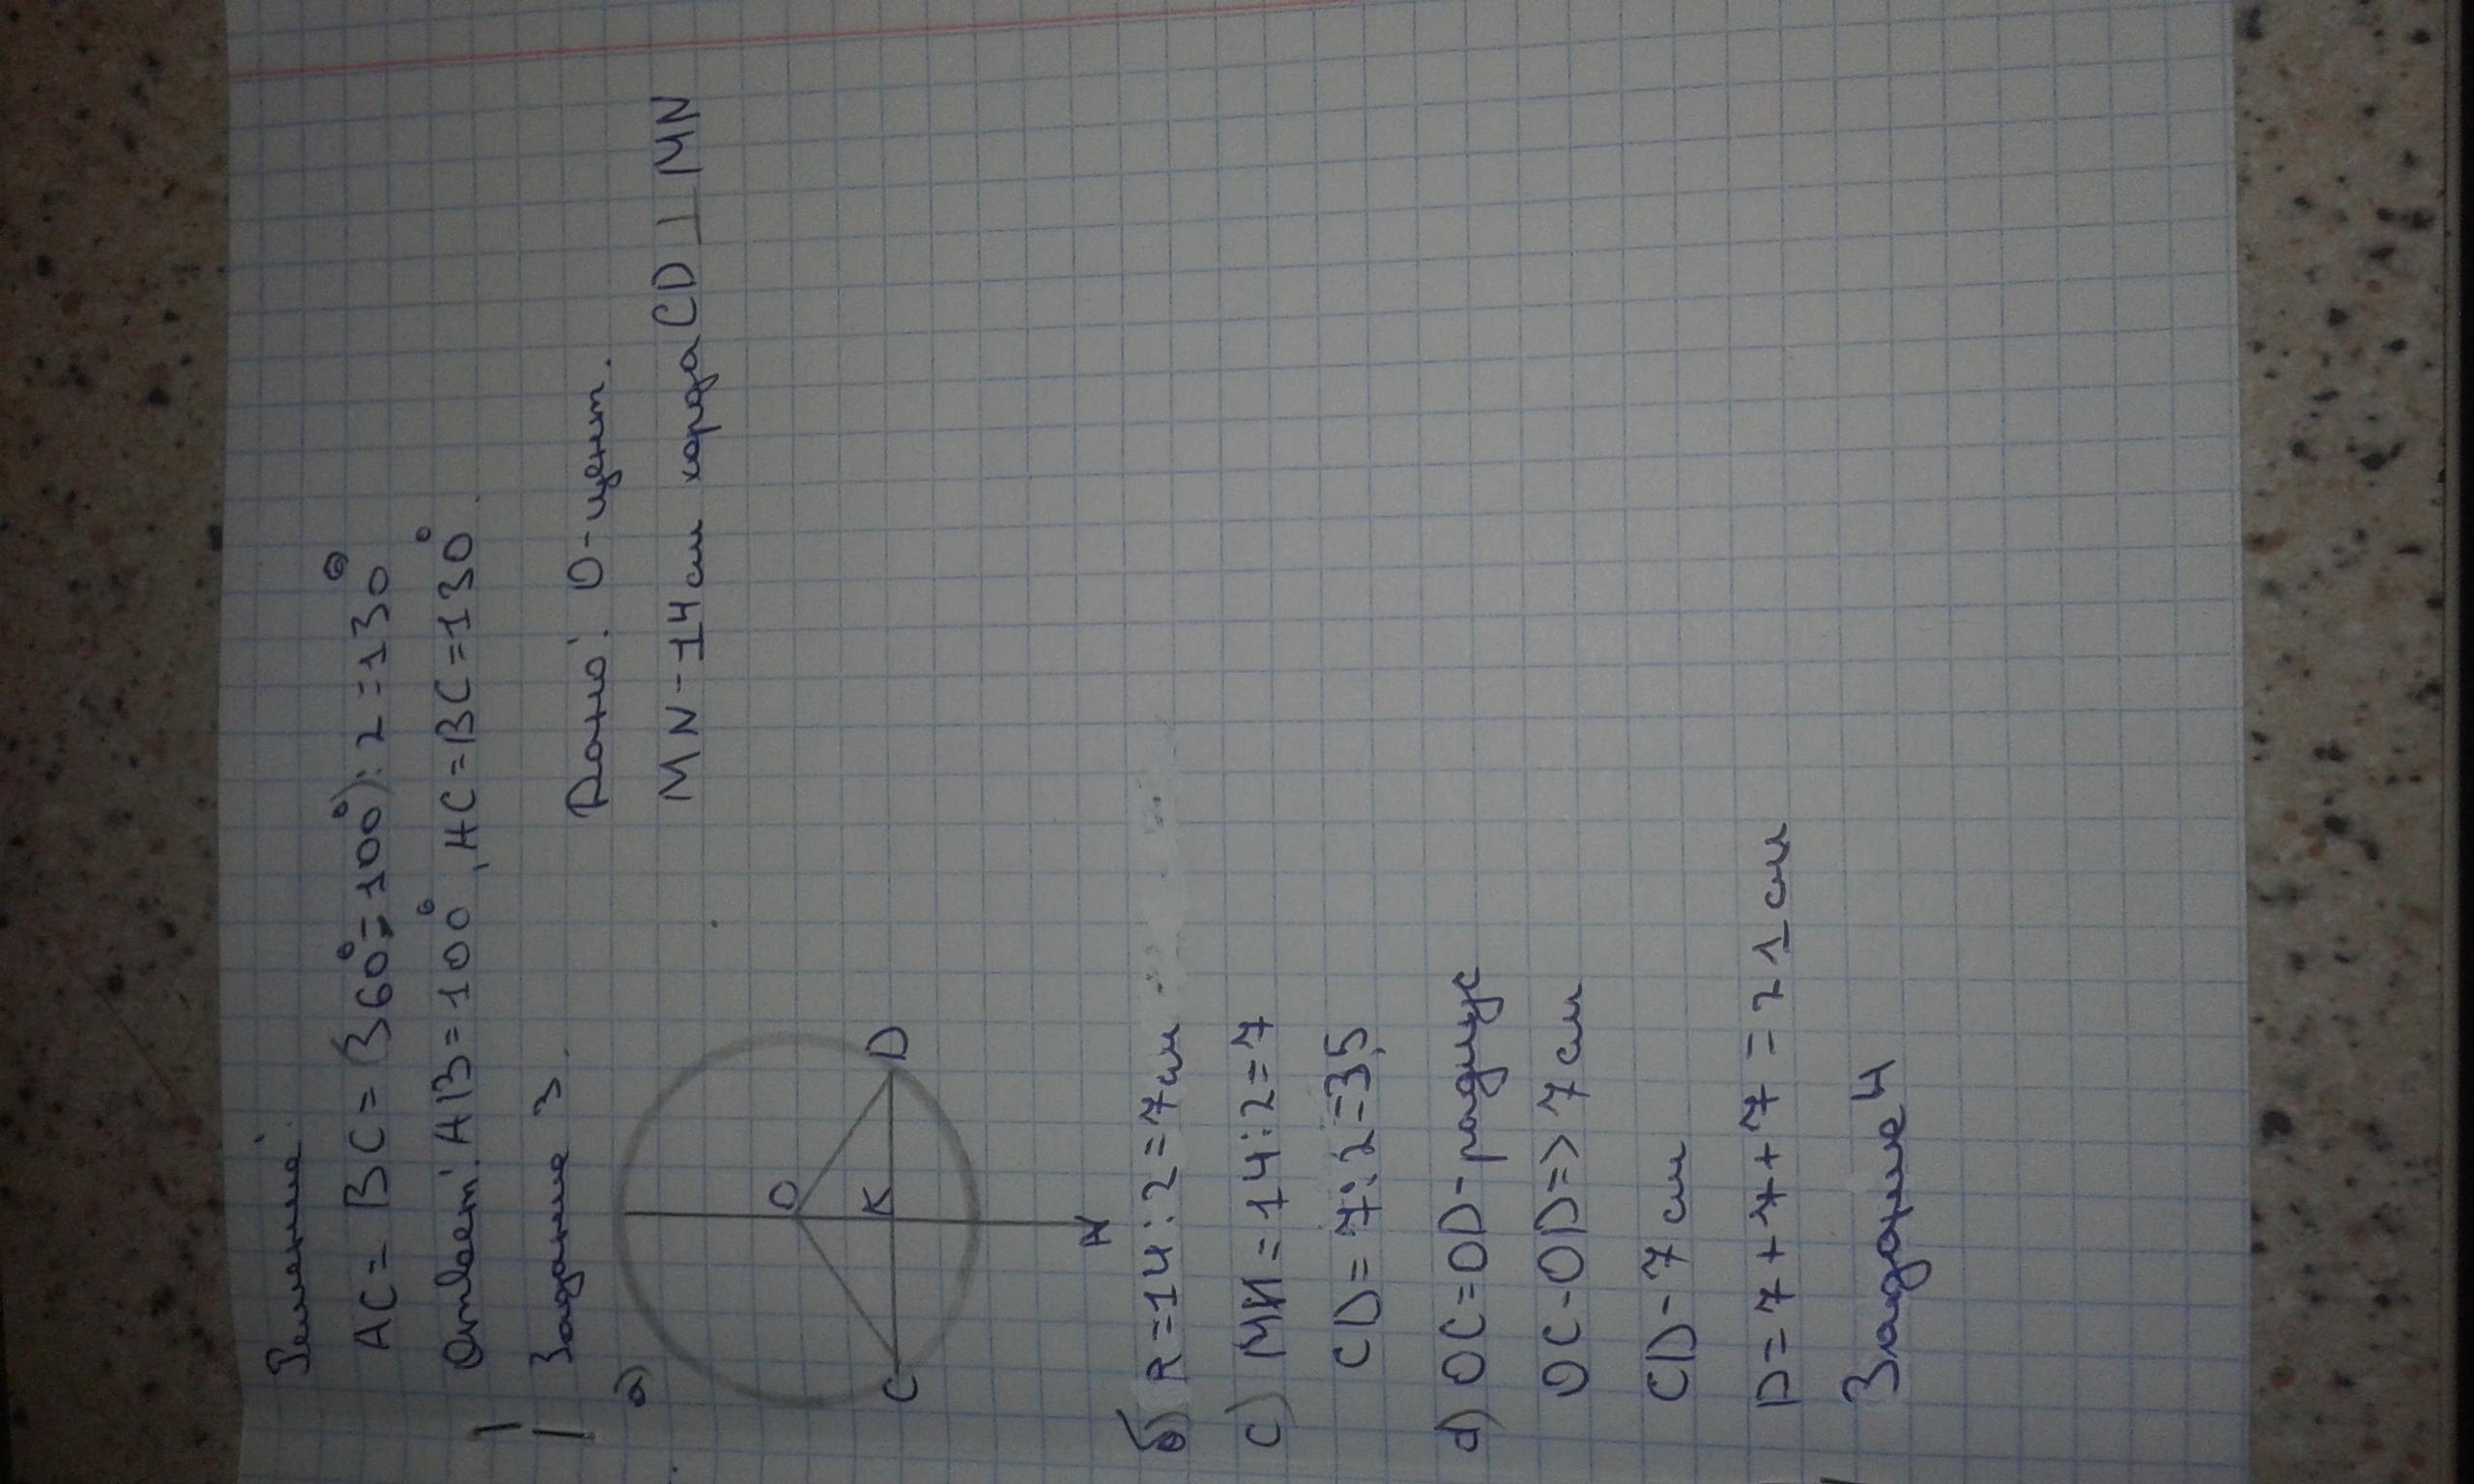 Решение:
AC = BC = (360°-100°):2=130°
Ответ: AB=100°, AC=BC=130°.
Задание 3.
Дано: O-цент.
MN-14см хорда CD⊥MN
a)
O
K
C
D
N
б) R=14:2=7см
c) MN=14:2=7
CD=7:2=3,5
d) OC=OD-радиус
OC-OD=>7см
CD-7см
D=7+7+7=21см
Задание 4